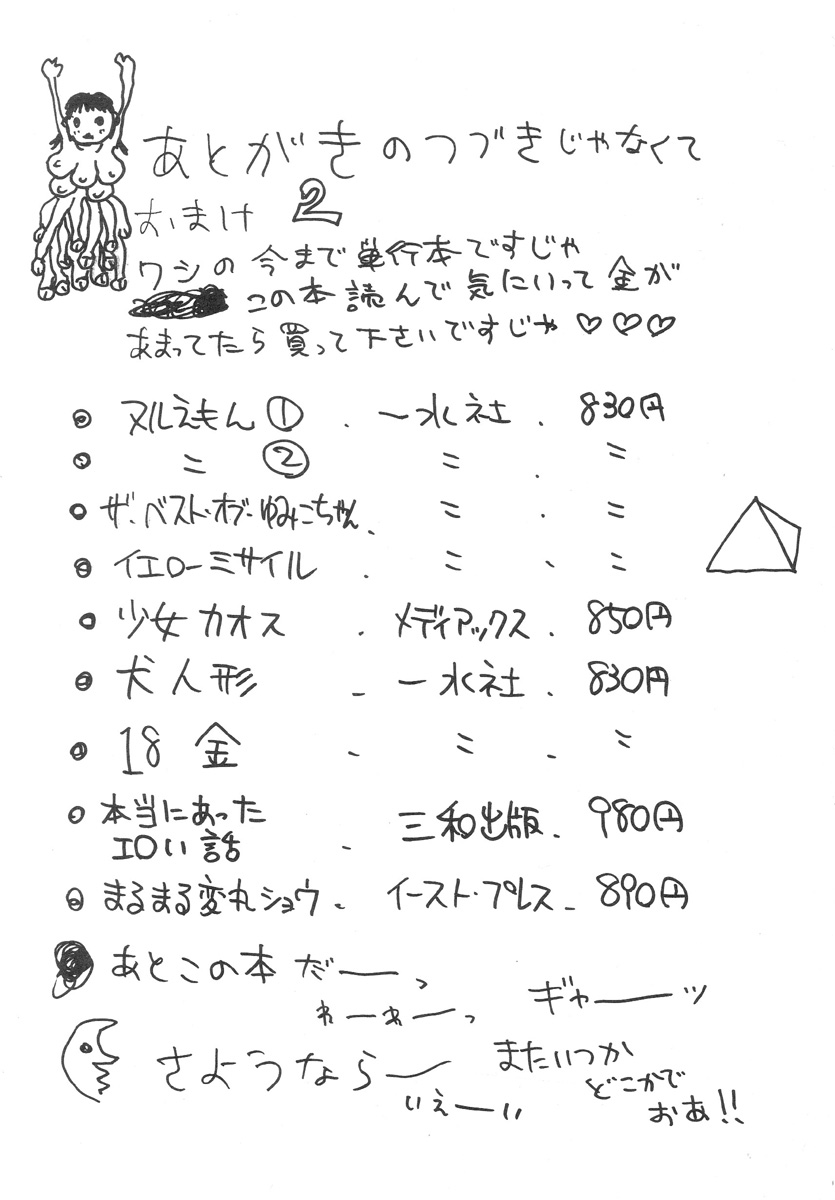 あとがきのつづきじゃなくて
おまけ 2
ワシの今まで単行本ですじゃ
この本読んで気にいって金が
あまってたら買って下さいですじゃ♡♡♡
◎ ヌルえもん① . 一水社 . 830円
◎ 〃 ② 〃 . 〃
◎ ザ・ベスト・オブ・ゆみこちゃん . 〃 . 〃
◎ イエローミサイル . 〃 . 〃
◎ 少女カオス . メディアックス . 850円
◎ 犬人形 . 一水社 . 830円
◎ 18金 . 〃 . 〃
◎ 本当にあった
エロい話 . 三和出版 . 980円
◎ まるまる変丸ショウ . イースト・プレス . 890円
● あとこの本だーっ
わーわーっ ギャーッ
さようならー またいつか
どこかで
いえーい おあ!!